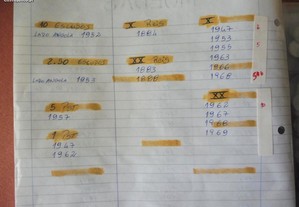 10 Escudos
Lago Angola 1952
2.50 Escudos
Lago Angola 1953
5 Pat
1957
1 Pat
1967
1962
X Reis
1884
XX Reis
1883
1884
X
1947
1953
1955
1963
1966
1968
XX
1962
1967
1968
1969